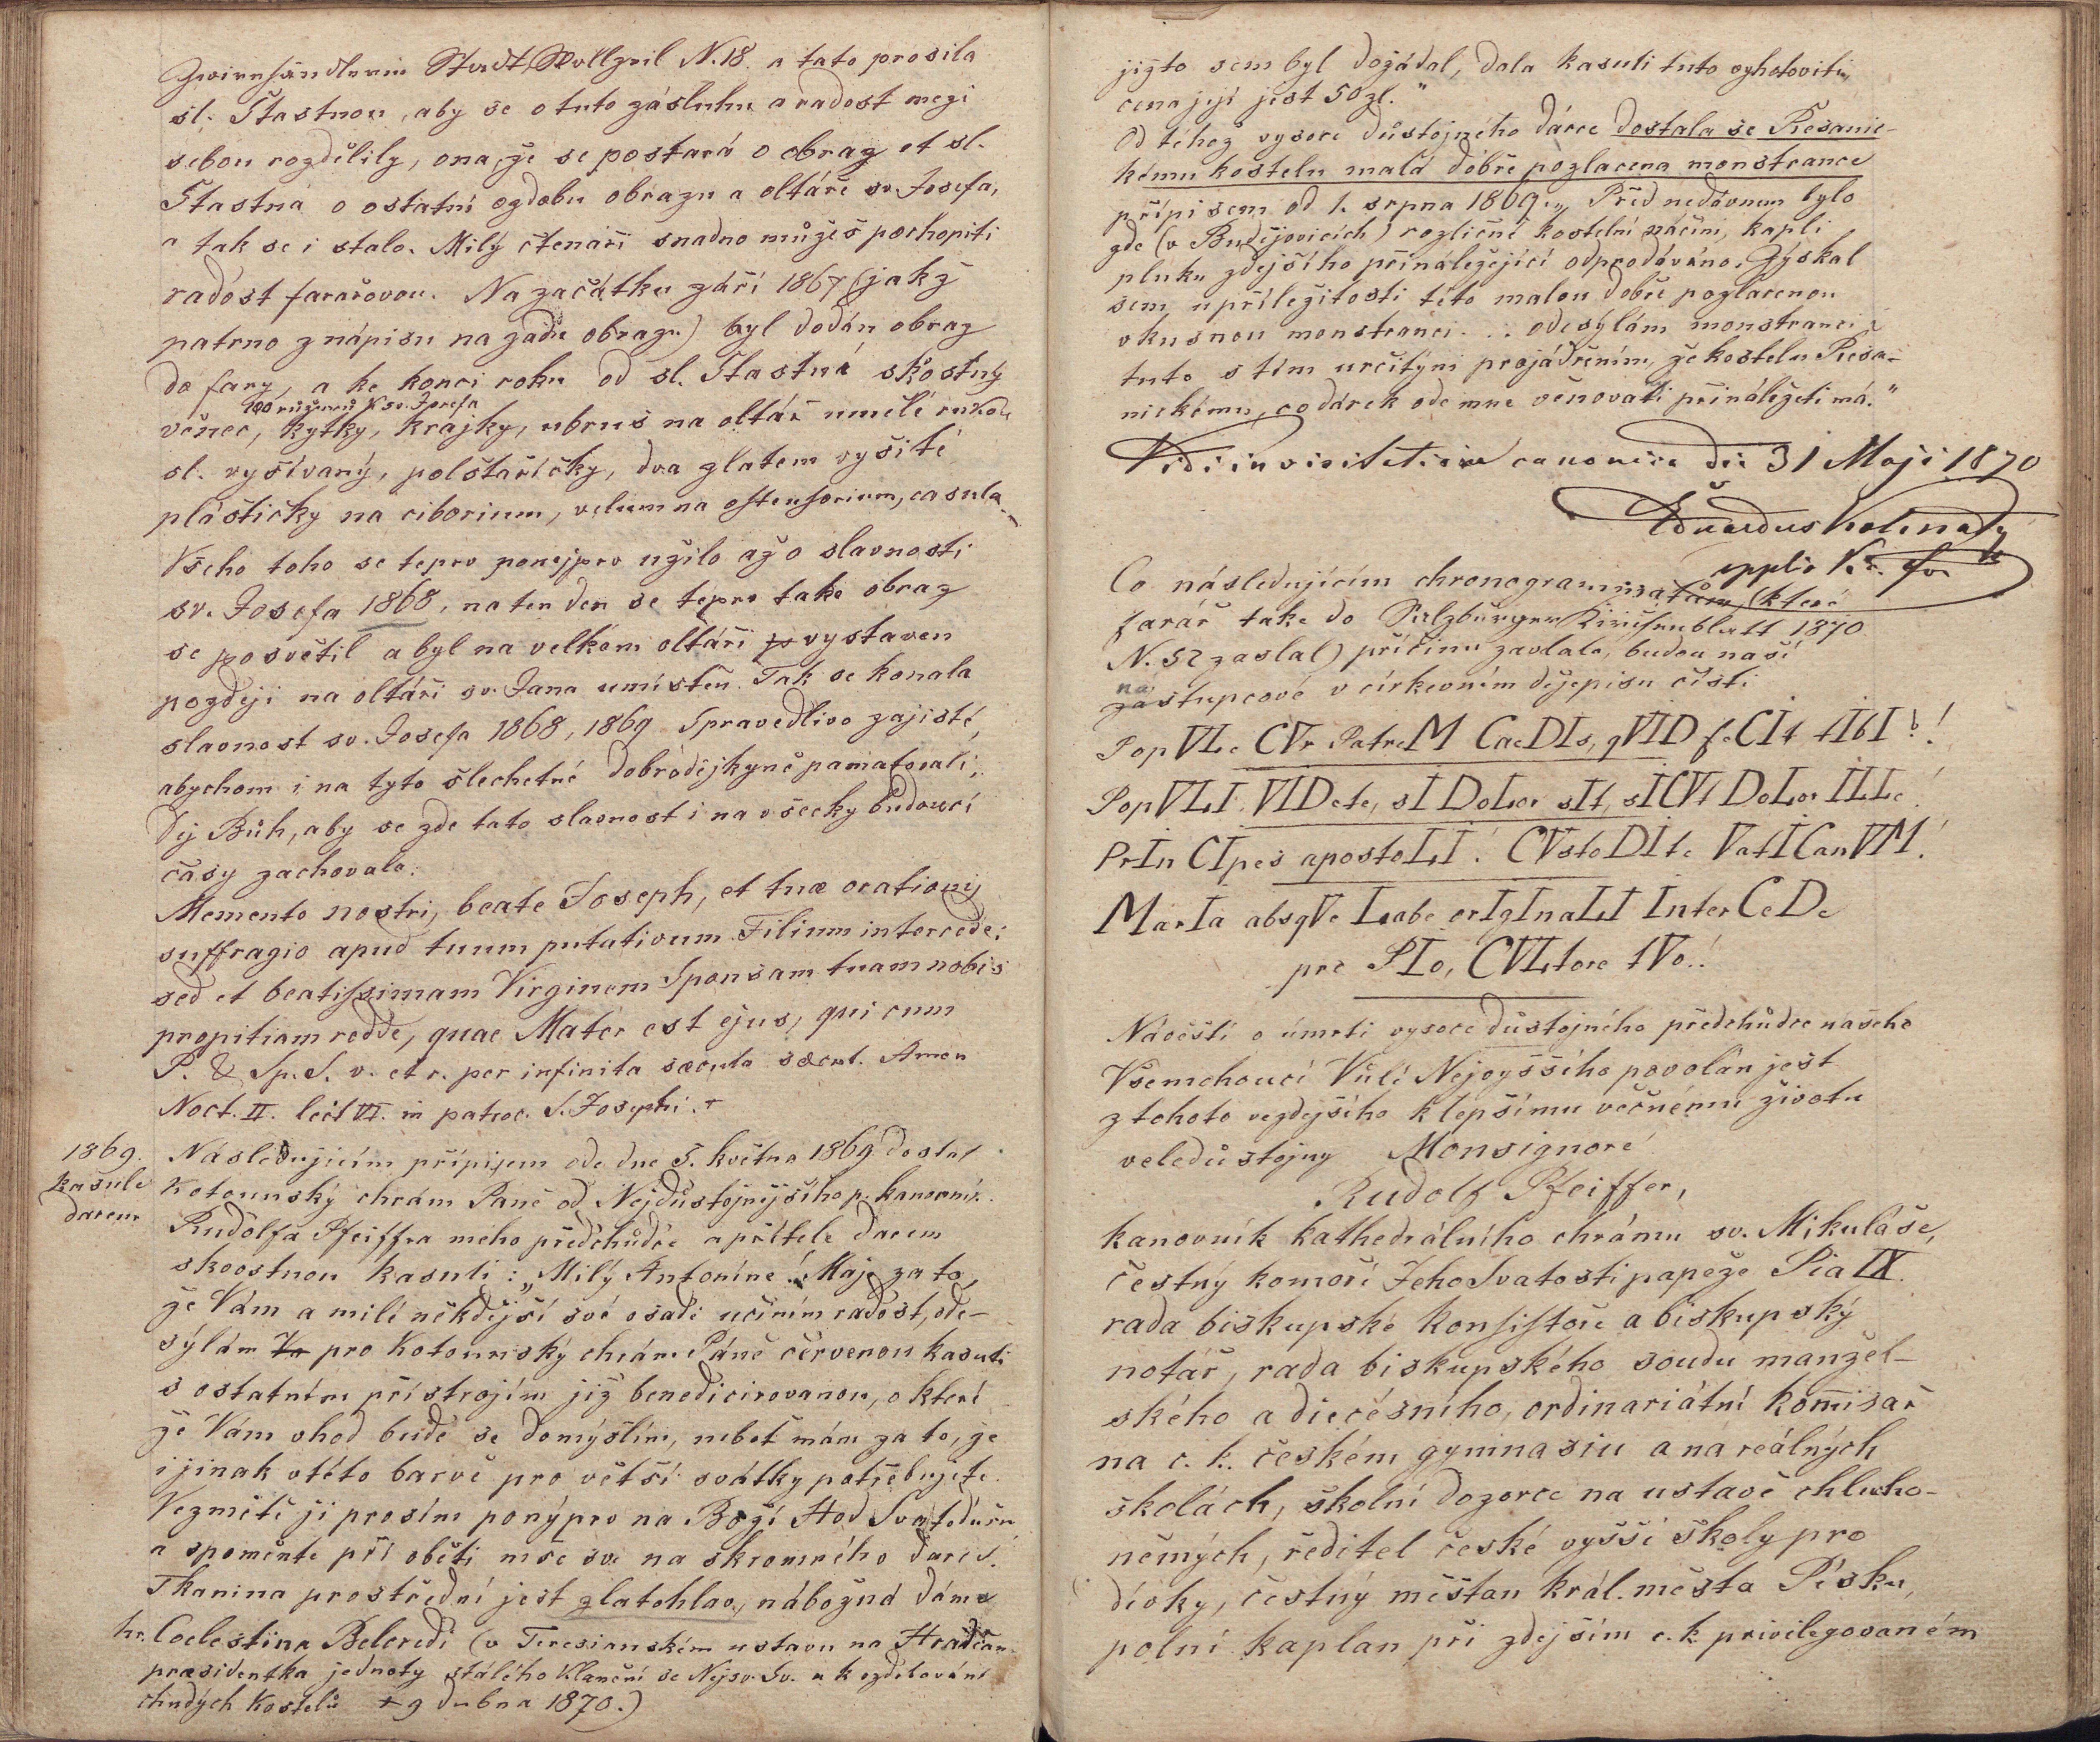 Zwirnhändlerin Stadt Wollzeil N. 18. a tato prosila
sl. Štastnou, aby se o tuto zásluhu a radost mezi
sebou rozdělily, ona, že se postará o obraz et sl.
Štastná o ostatní ozdobu obrazu a oltáře sv. Josefa,
a tak se i stalo. Milý čtenáři snadno můžeš pochopiti
radost farařovou. Na začátku září 1867 (jakž
patrno z nápisu na zadu obrazu) byl dodán obraz
do fary, a ke konci roku od sl. Štastná skvostný
100 růženců k sv. Josefa
věnec, kytky, krajky, ubrus na oltář umělé rukou
sl. vyšívaný, polštaříčky, dva zlatem vyšité
pláštičky na ciborium, velum na ostensorium, casula
Všeho toho se teprv ponejprv užilo až o slavnosti
sv. Josefa 1868, na ten den se teprv take obraz
se posvětil a byl na velkém oltáři vystaven
později na oltáři sv. Jana umístěn. Tak se konala
slavnost sv. Josefa 1868, 1869 Spravedlivo zajisté,
abychom i na tyto šlechetné dobrodějkyně pamatovali;
Dej Bůh, aby se zde tato slavnost i na všecky budoucí
časy zachovala.
Memento nostri, beate Joseph, et tuæ orationis
suffragio apud tuum putativum Filium intercede;
sed et beatissimam Virginem Sponsam tuam nobis
propitiam redde, quae Mater est ejus, qui cum
P. & Sp. S. v. et r. per infinita sæcula sæcul. Amen
Noct. II. lect VI. in patroc. S. Josephi. +
1869.
kasule
darem
Následujícím přípisem ode dne 5. května 1869 dostal
Kotounský chrám Páně od Nejdůstojnějšího p. kanovní.
Rudolfa Pfeiffra mého předchůdce a přítele darem
skvostnou kasuli: „Milý Antoníne! Maje za to,
že Vám a milé někdejší své osadě učiním radost, ode-
sýlám pro Kotounský chrám Páně červenou kasuli
s ostatním přístrojím již benedicirovanou, o které
že Vám vhod bude se domýšlím, nebot mám za to, že
i jinak v této barvě pro větší svátky potřebujete.
Vezměte ji prosím ponýprv na Boží Hod Svatodušn
a zpomente při oběti mše sv. na skromného dárce.
Tkanina prostřední jest zlatohlav, nábožná dáma
hr. Coelestina Belcredi (v Teresianském ustavu na Hradčan.
præsidentka jednoty stálého klanění se Nejsv. Sv. a k ozdobování
chudých kostelů + 9 dubna 1870.)
jižto sem byl dožádal, dala kasuli tuto zhotoviti,
cena její jest 50 zl."
Od téhož vysoce důstojného dárce dostala se Řesanic-
kému kostelu malá dobře pozlacena monstrance
přípisem od 1. srpna 1869. „Před nedávnem bylo
zde (v Budějovicích) rozličné kostelní náčiní, kapli
pluku zdejšího přináležející odprodáváno. Získal
sem u příležitosti této malou dobře pozlacenou
vkusnou monstranci . . . odesýlám monstranci
tuto s tím určitým projádřením, že kostelu Řesa-
nickému, co dárek ode mne věnovati přináležeti má."
Vidi in visitatione canonica die 31 Maji 1870
Eduardus
Co následujícím chronogrammatům (které
farář take do Salzburger Kirchenblatt 1870
N. 52 zaslal) příčinu zavdalo, budou naší
nástupcové v církevním dějepisu čísti
PopVLe CVr PatreM CaeDIs, qVID feCIt tIbI?!
PopVLI VIDete, sI DoLor sIt, sICVt DoLor ILLe!
PrInCIpes apostoLI! CVstoDIte VatICanVM!
MarIa absqVe Labe orIgInaLI InterCeDe
pro PIo, CVLtore tVo!
Návěští o úmrtí vysoce důstojného předchůdce našeho
Všemohoucí Vůlí Nejvyššího povolán jest
z tohoto vezdejšího k lepšímu věčnému životu
veledůstojny Monsignoré
Rudolf Pfeiffer,
kanovník kathedrálního chrámu sv. Mikuláše,
čestný komoří Jeho Svatosti papeže Pia IX.
rada biskupské konsistoře a biskupský
notář, rada biskupského soudu manžel-
ského a diecésního, ordinariátní komisař
na c. k. českém gymnasiu a na reálných
školách, školní dozorce na ustavě chlucho-
němých, ředitel české vyšší školy pro
dívky, čestný měštan král. města Písku,
polní kaplan při zdejším c. k. privilegovaném